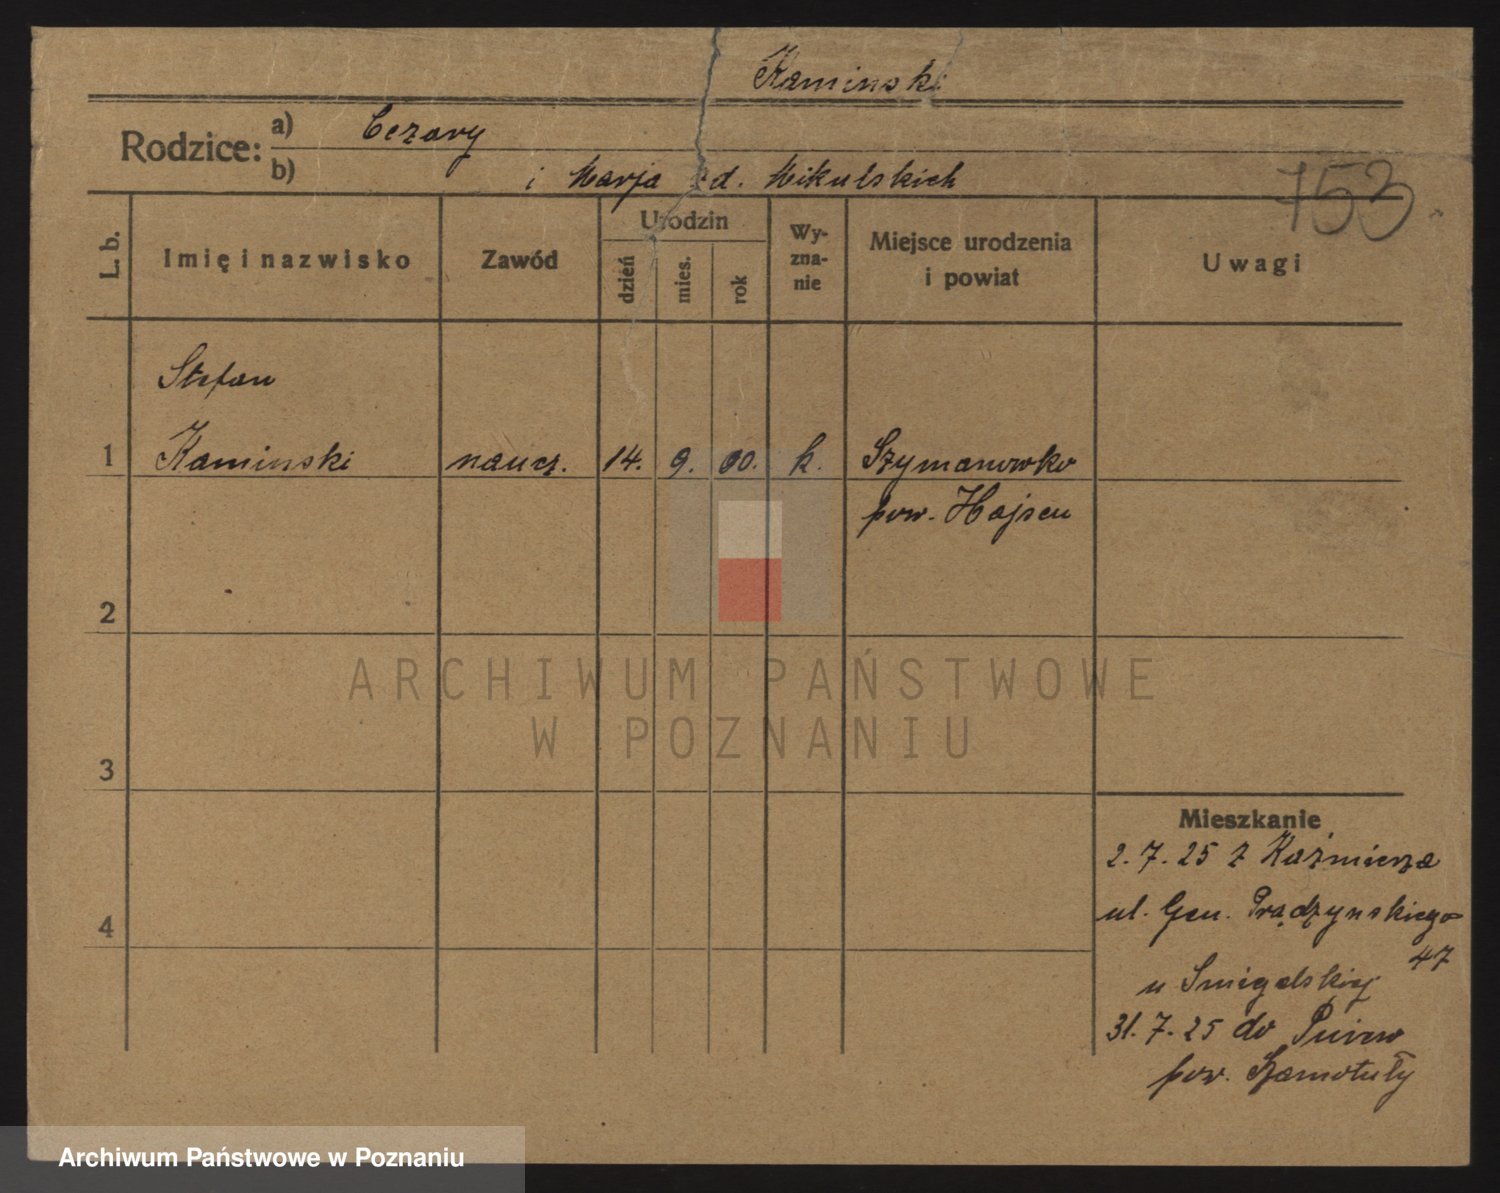 Kaminski
Rodzice: a) Cezary
b) i Marja zd. Mikulskich
153
L. b.
Imię i nazwisko
Zawód
Urodzin
dzień
mies.
rok
Wy-
zna-
nie
Miejsce urodzenia
i powiat
Uwagi
Stefan
1 Kaminski naucz. 14. 9. 00. k. Szymanowko
pow. Hajsen
2
3
4
Mieszkanie
2.7.25 z Kaźmierza
ul. Gen. Prądzynskiego
47
u Smigelskiej
31.7.25 do
pow. Szamotuły
ARCHIWUM PAŃSTWOWE
W POZNANIU
Archiwum Państwowe w Poznaniu